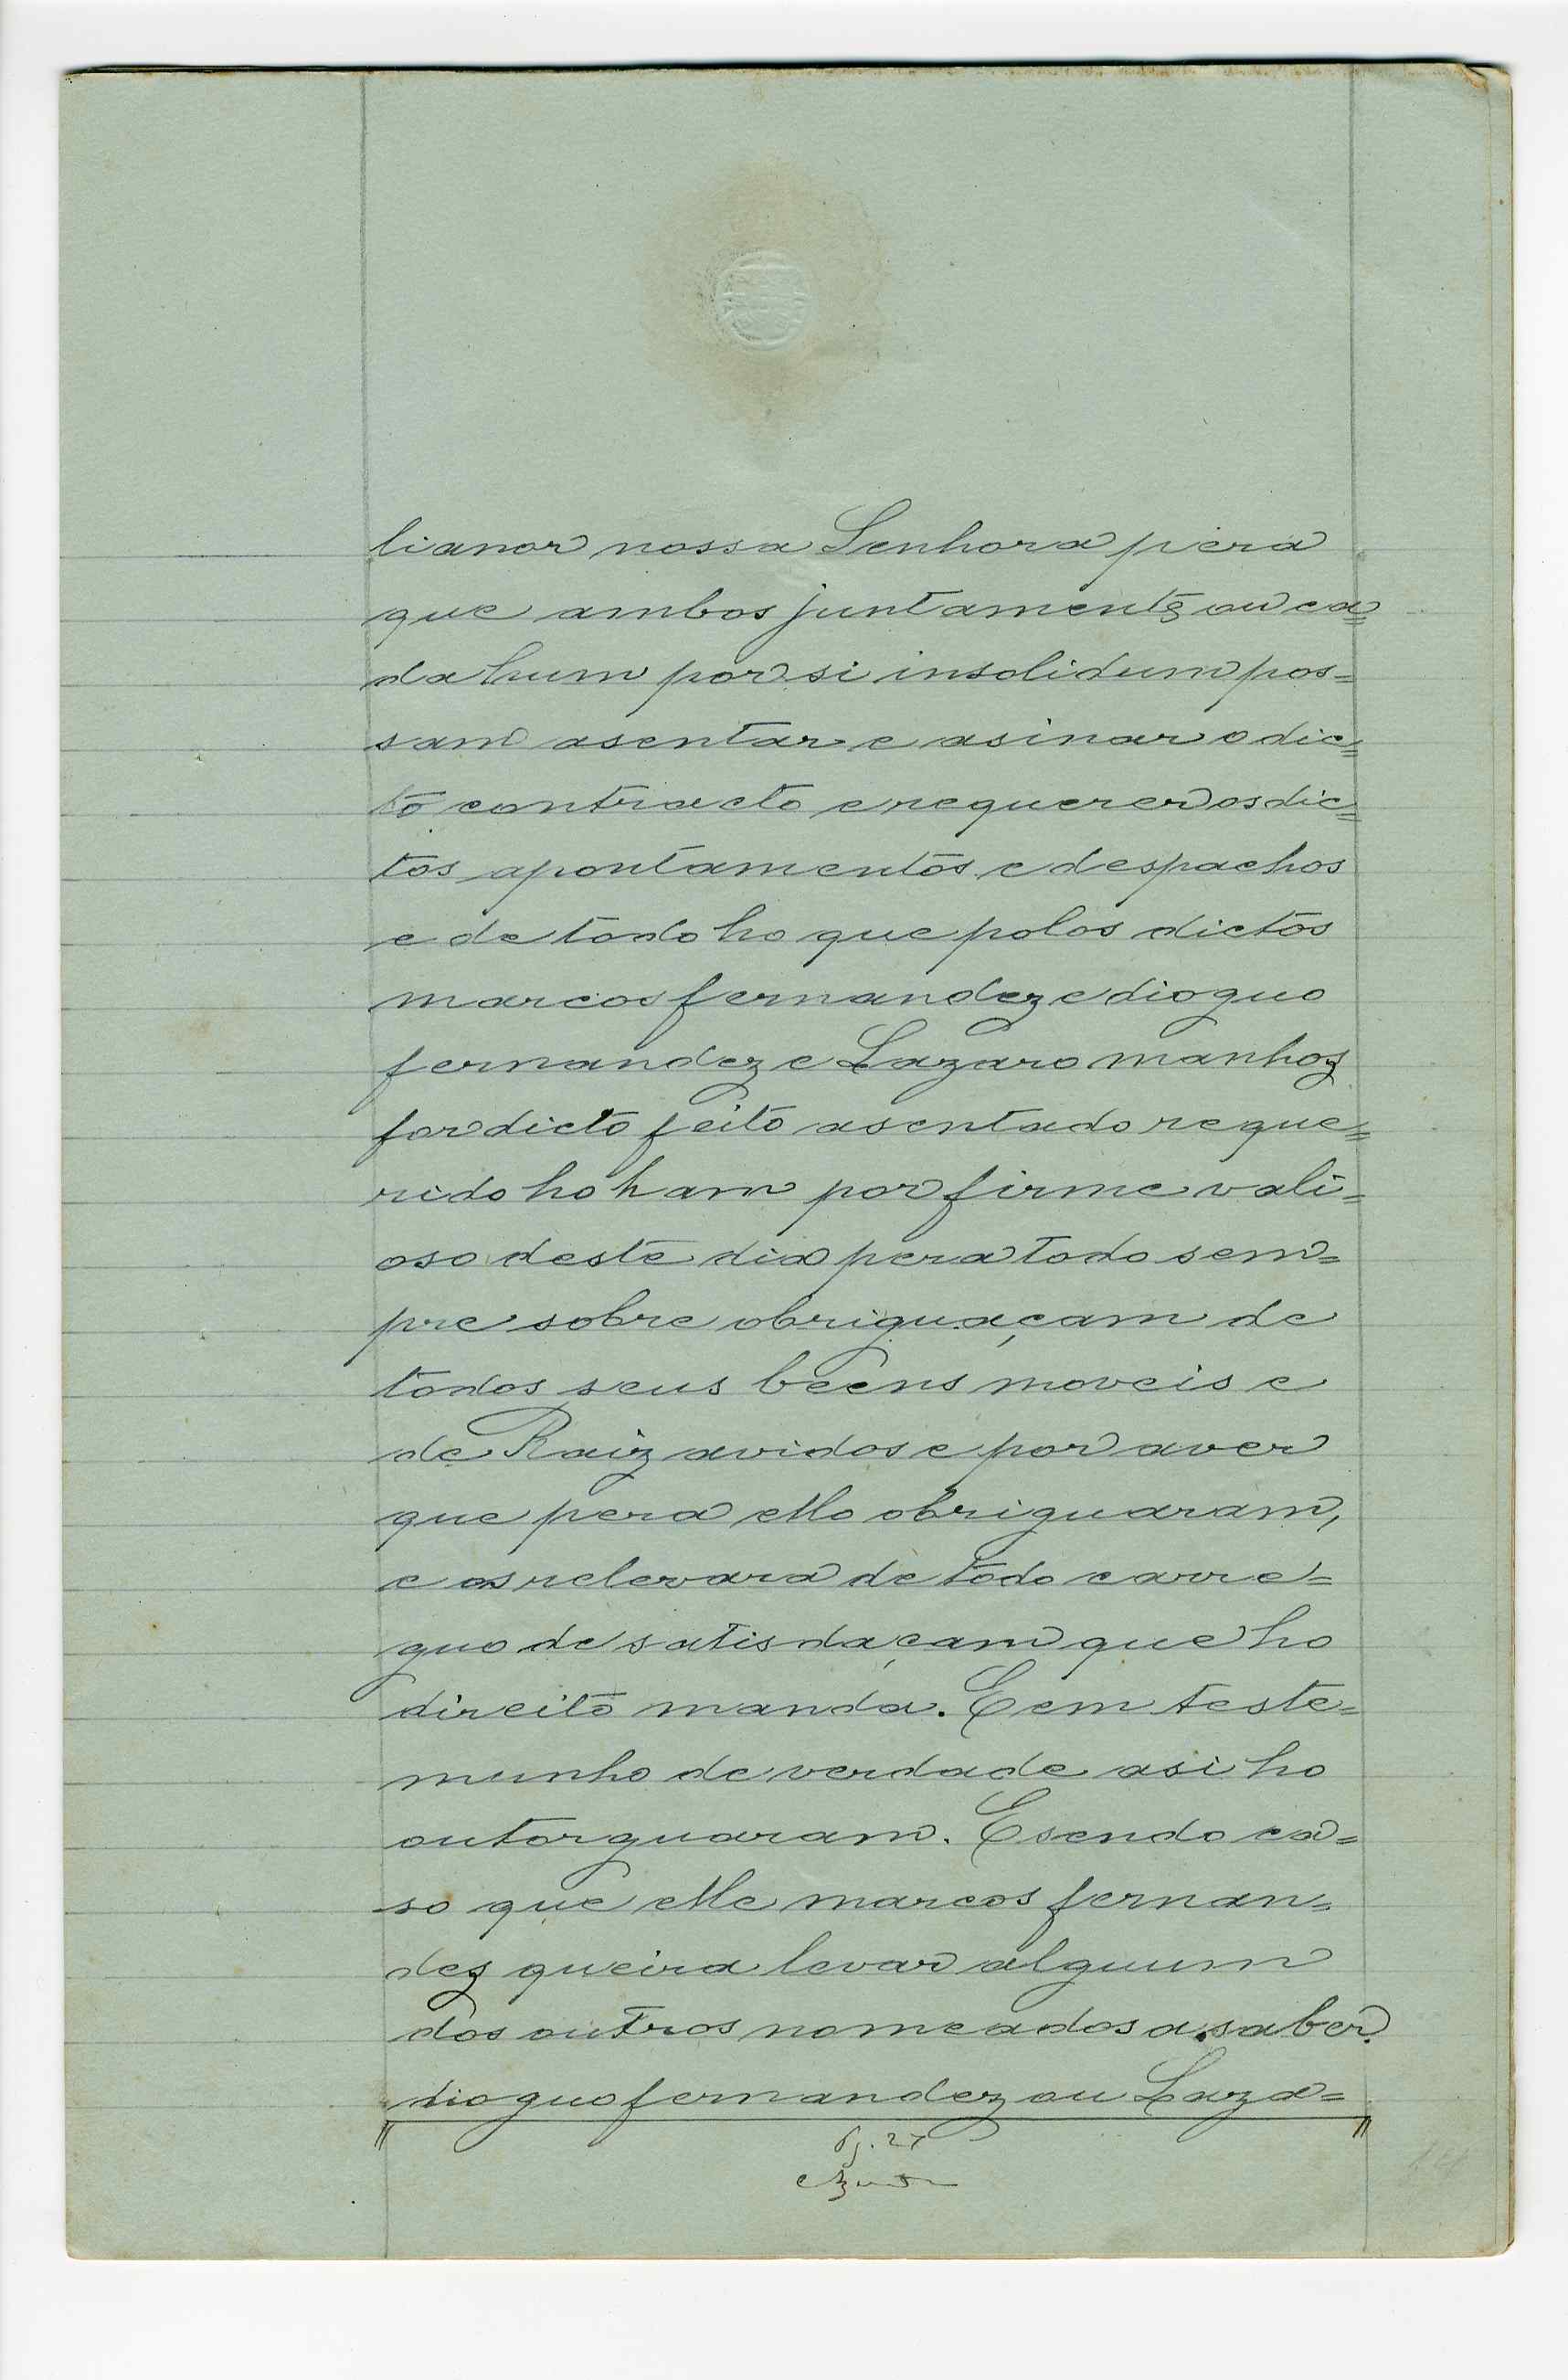 lianor nossa Senhora pera
que ambos juntamente ou ca=
da hum por si insolidum pos=
sam asentar e asinar o dic=
to contracto e requerer os dic=
tos apontamentos e despachos
e de todo ho que polos dictos
marcos fernandez e dioguo
fernandez e Lazaro manhoz
for dicto feito asentado reque=
rido ho ham por firme vali=
oso deste dia pera todo sem=
pre sobre obriguaçam de
todos seus beens moveis e
de Raiz avidos e por aver
que pera ello obriguaram,
e os relevara de todo carre=
guo de satisdaçam que ho
direito manda. E em teste=
munho de verdade asi ho
outorguaram. E sendo ca=
so que elle marcos fernan=
dez queira levar alguum
dos outros nomeados a saber
dioguo fernandez ou Laza=
27